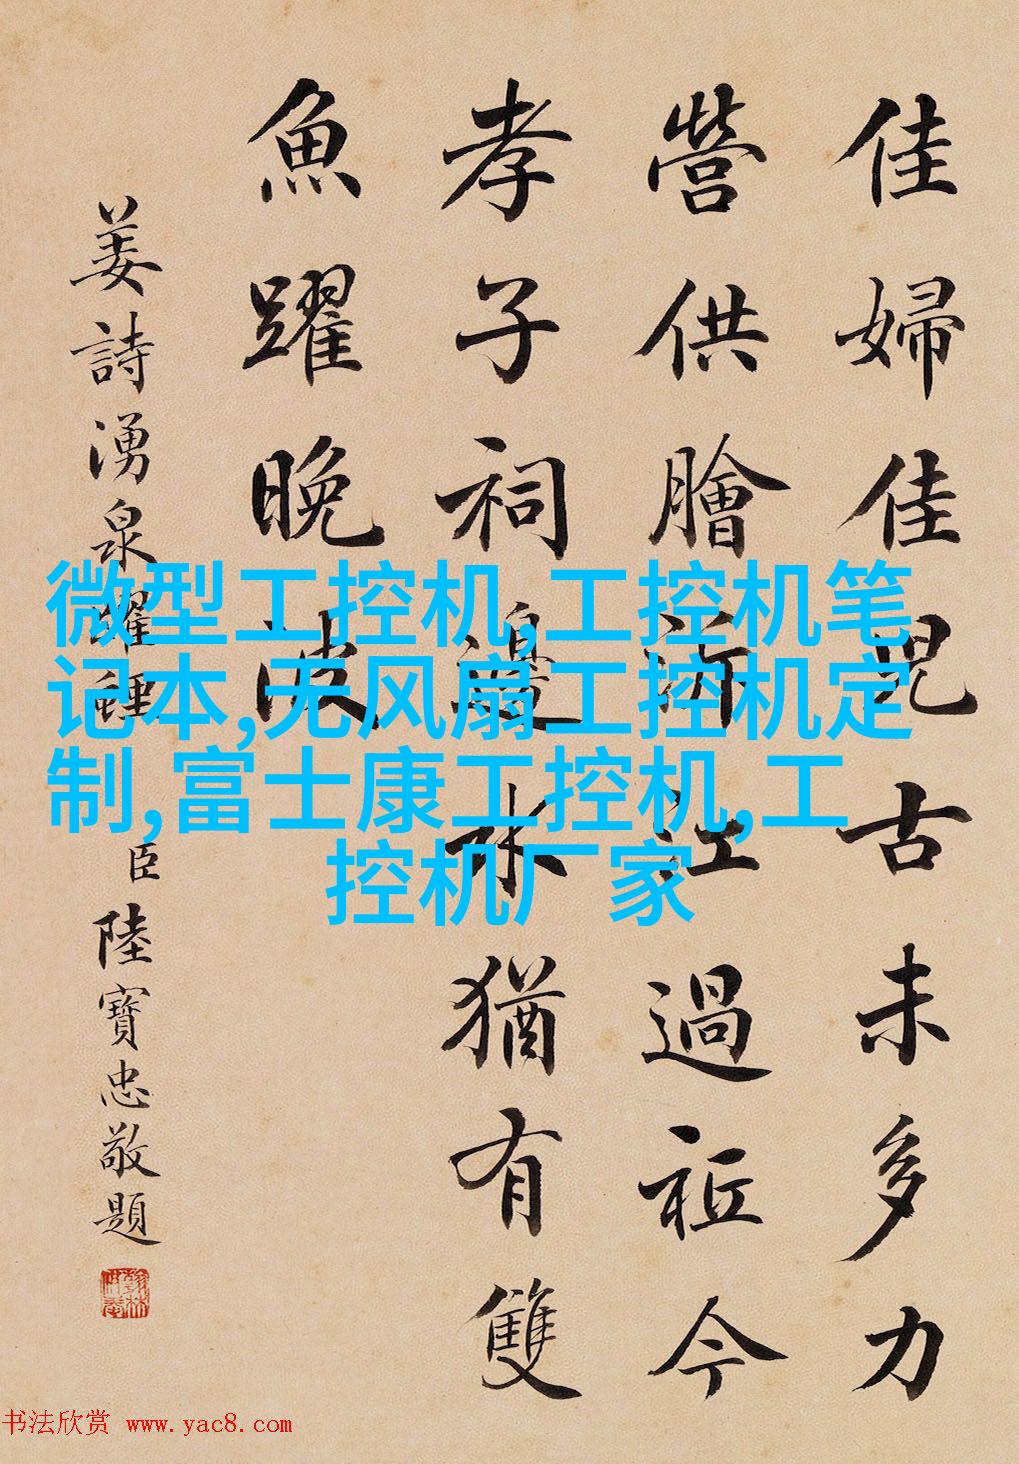 佳婦佳兒古未多力
營供膾泝江過祗今
孝子祠邊水猶有雙
魚躍晚波
姜詩湧泉躍鯉 臣陸寶忠敬題
微型工控机,工控机笔
记本,无风扇工控机定
制,富士康工控机,工
控机厂家
书法欣赏 www.yac8.com